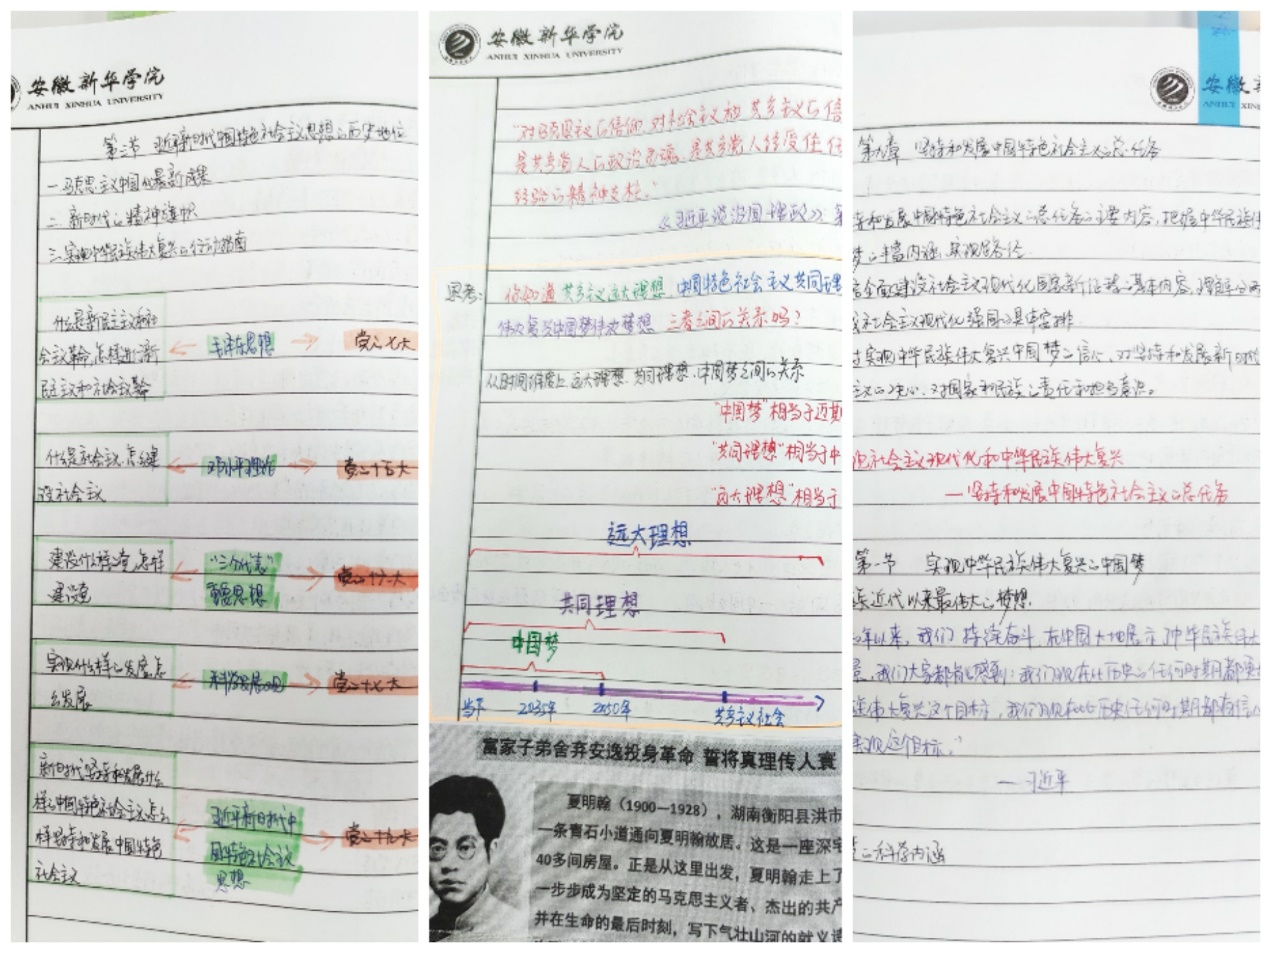 安徽新华学院
ANHUI XINHUA UNIVERSITY
第三节 习近平新时代中国特色社会主义思想的历史地位
一.马克思主义中国化最新成果
二.新时代的精神旗帜
三.实现中华民族伟大复兴的行动指南
什么是新民主主义和社
会主义革命,怎样进行新
民主主义和社会主义革命
毛泽东思想
党的七大
什么是社会主义.怎么建
设社会主义
邓小平理论
党的十五大
建设什么样的党,怎样
建设党
"三个代表"
重要思想
党的十六大
实现什么样的发展,怎
么发展
科学发展观
党的十七大
新时代坚持和发展什么
样的中国特色社会主义,怎么
样坚持和发展中国特色
社会主义
习近平新时代中
国特色社会主义
思想
党的十九大
安徽新华学院
ANHUI XINHUA UNIVERSITY
"对马克思主义的信仰,对社会主义和共产主义的信
是共产党人的政治灵魂,是共产党人经受住任
经验的精神支柱."
《习近平谈治国理政》第
思考:
你知道共产主义远大理想,中国特色社会主义共同理
伟大复兴中国梦伟大梦想 三者之间的关系吗?
从时间维度上,远大理想,共同理想,中国梦之间的关系
"中国梦"相当于近期
"共同理想"相当于中
"远大理想"相当于
远大理想
共同理想
中国梦
当下 2035年 2050年 共产主义社会
富家子弟舍弃安逸投身革命 誓将真理传人寰
夏明翰(1900—1928),湖南衡阳县洪市
一条青石小道通向夏明翰故居。这是一座深宅
40多间房屋。正是从这里出发,夏明翰走上了
一步步成为坚定的马克思主义者、杰出的共产
并在生命的最后时刻,写下气壮山河的就义诗
安徽
ANHUI XIN
第九章 坚持和发展中国特色社会主义的总任务
持和发展中国特色社会主义的总任务的主要内容,把握中华民族伟
梦的丰富内涵,实现路径.
启全面建设社会主义现代化国家新征程的基本内容,理解分两
社会主义现代化强国的具体安排.
实现中华民族伟大复兴中国梦的信心,对坚持和发展新时代
主义的决心,对国家和民族的责任和担当意识。
现社会主义现代化和中华民族伟大复兴
—坚持和发展中国特色社会主义的总任务
第一节 实现中华民族伟大复兴的中国梦
族近代以来最伟大的梦想.
年以来,我们持续奋斗,在中国大地展示了中华民族伟大
景,我们大家都有的感到:我们现在比历史的任何时期都更
族伟大复兴这个目标,我们现在比历史任何时期都有信心
实现这个目标."
—习近平
的科学内涵